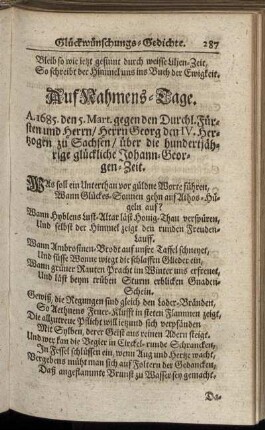 Glückwünschungs-Gedichte. 287
Bleib so wie jetzt gesinnt durch weisse Lilien-Zeit,
So schreibt der Himmel uns ins Buch der Ewigkeit.
Auf Nahmens-Tage.
A. 1685. den 5. Mart. gegen den Durchl. Für-
sten und Herrn/ Herrn Georg den IV. Her-
tzogen zu Sachsen/ über die hundertjäh-
rige glückliche Johann-Geor-
gen-Zeit.
Was soll ein Unterthan vor güldne Worte führen,
Wann Glückes-Sonnen gehn auf Athos-Hü-
geln auf?
Wann Hyblens Lust-Altar läst Honig-Thau verspüren,
Und selbst der Himmel zeigt den runden Freuden-
Lauff.
Wann Ambrosinen-Brodt auf unsre Taffel schneyet,
Und süsse Wonne wiegt die schlaffen Glieder ein,
Wann grüner Rauten Pracht im Winter uns erfreuet,
Und läst beym trüben Sturm erblicken Gnaden-
Schein.
Gewiß, die Regungen sind gleich den Loder-Bränden,
So Aethnens Feuer-Klufft in steten Flammen zeigt,
Die allgetreue Pflicht will jetzund sich verpfänden
Mit Sylben, derer Geist aus reinen Adern steigt.
Und wer kan die Begier in Circkel-runde Schrancken,
In Fessel schlüssen ein, wenn Aug und Hertze wacht,
Vergebens müht man sich auf Foltern der Gedancken,
Daß angestammte Brunst zu Wasser sey gemacht,
Da-